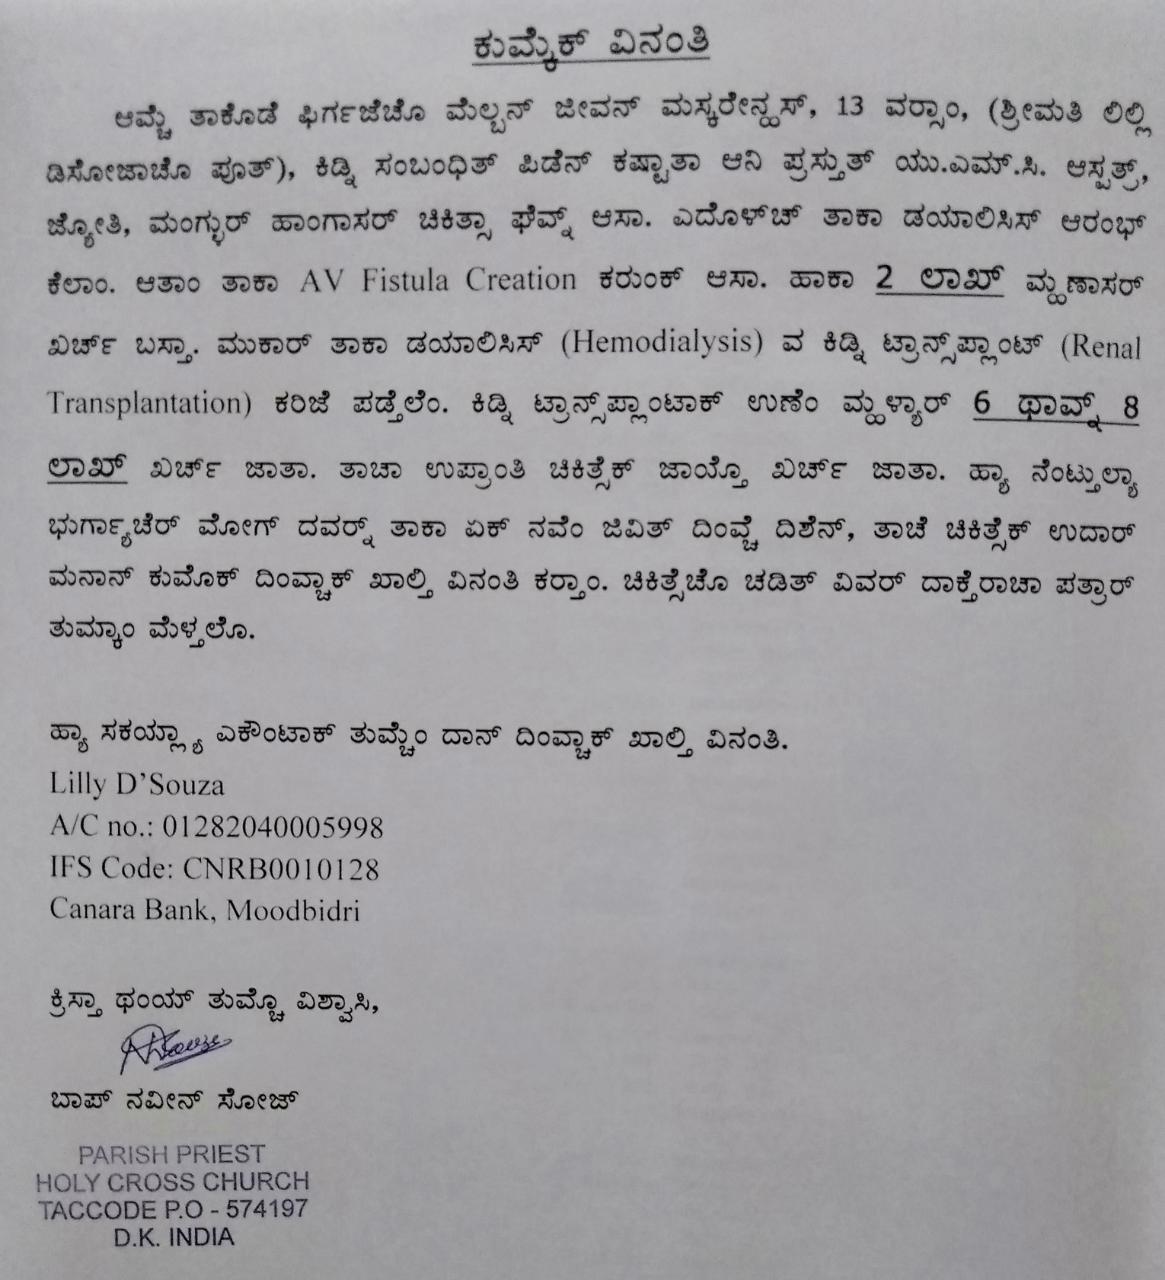 ಕುಮ್ಕೆಕ್ ವಿನಂತಿ
ಆಮ್ಚೆ ತಾಕೊಡೆ ಫಿರ್ಗಜೆಚೊ ಮೆಲ್ಬನ್ ಜೀವನ್ ಮಸ್ಕರೇನ್ಹಸ್, 13 ವರ‍್ಸಾಂ, (ಶ್ರೀಮತಿ ಲಿಲ್ಲಿ
ಡಿಸೋಜಾಚೊ ಪೂತ್), ಕಿಡ್ನಿ ಸಂಬಂಧಿತ್ ಪಿಡೆನ್ ಕಷ್ಟಾತಾ ಆನಿ ಪ್ರಸ್ತುತ್ ಯು.ಎಮ್.ಸಿ. ಆಸ್ಪತ್ರ್,
ಜ್ಯೋತಿ, ಮಂಗ್ಳುರ್ ಹಾಂಗಾಸರ್ ಚಿಕಿತ್ಸಾ ಘೆವ್ನ್ ಆಸಾ. ಎದೊಳ್‌ಚ್ ತಾಕಾ ಡಯಾಲಿಸಿಸ್ ಆರಂಭ್
ಕೆಲಾಂ. ಆತಾಂ ತಾಕಾ AV Fistula Creation ಕರುಂಕ್ ಆಸಾ. ಹಾಕಾ 2 ಲಾಖ್ ಮ್ಹಣಾಸರ್
ಖರ್ಚ್ ಬಸ್ತಾ. ಮುಕಾರ್ ತಾಕಾ ಡಯಾಲಿಸಿಸ್ (Hemodialysis) ವ ಕಿಡ್ನಿ ಟ್ರಾನ್ಸ್‌ಪ್ಲಾಂಟ್ (Renal
Transplantation) ಕರಿಜೆ ಪಡ್ತೆಲೆಂ. ಕಿಡ್ನಿ ಟ್ರಾನ್ಸ್‌ಪ್ಲಾಂಟಾಕ್ ಉಣೆಂ ಮ್ಹಳ್ಯಾರ್ 6 ಥಾವ್ನ್ 8
ಲಾಖ್ ಖರ್ಚ್ ಜಾತಾ. ತಾಚಾ ಉಪ್ರಾಂತಿ ಚಿಕಿತ್ಸೆಕ್ ಜಾಯ್ತೊ ಖರ್ಚ್ ಜಾತಾ. ಹ್ಯಾ ನೆಂಟ್ತುಲ್ಯಾ
ಭುರ್ಗ್ಯಾಚೆರ್ ಮೋಗ್ ದವರ‍್ನ್ ತಾಕಾ ಏಕ್ ನವೆಂ ಜಿವಿತ್ ದಿಂವ್ಚೆ ದಿಶೆನ್, ತಾಚೆ ಚಿಕಿತ್ಸೆಕ್ ಉದಾರ್
ಮನಾನ್ ಕುಮೊಕ್ ದಿಂವ್ಚಾಕ್ ಖಾಲ್ತಿ ವಿನಂತಿ ಕರ‍್ತಾಂ. ಚಿಕಿತ್ಸೆಚೊ ಚಡಿತ್ ವಿವರ್ ದಾಕ್ತೆರಾಚಾ ಪತ್ರಾರ್
ತುಮ್ಕಾಂ ಮೆಳ್ತಲೊ.
ಹ್ಯಾ ಸಕಯ್ಲ್ಯಾ ಎಕೌಂಟಾಕ್ ತುಮ್ಚೆಂ ದಾನ್ ದಿಂವ್ಚಾಕ್ ಖಾಲ್ತಿ ವಿನಂತಿ.
Lilly D’Souza
A/C no.: 01282040005998
IFS Code: CNRB0010128
Canara Bank, Moodbidri
ಕ್ರಿಸ್ತಾ ಥಂಯ್ ತುಮ್ಚೊ ವಿಶ್ವಾಸಿ,
ಬಾಪ್ ನವೀನ್ ಸೋಜ್
PARISH PRIEST
HOLY CROSS CHURCH
TACCODE P.O - 574197
D.K. INDIA